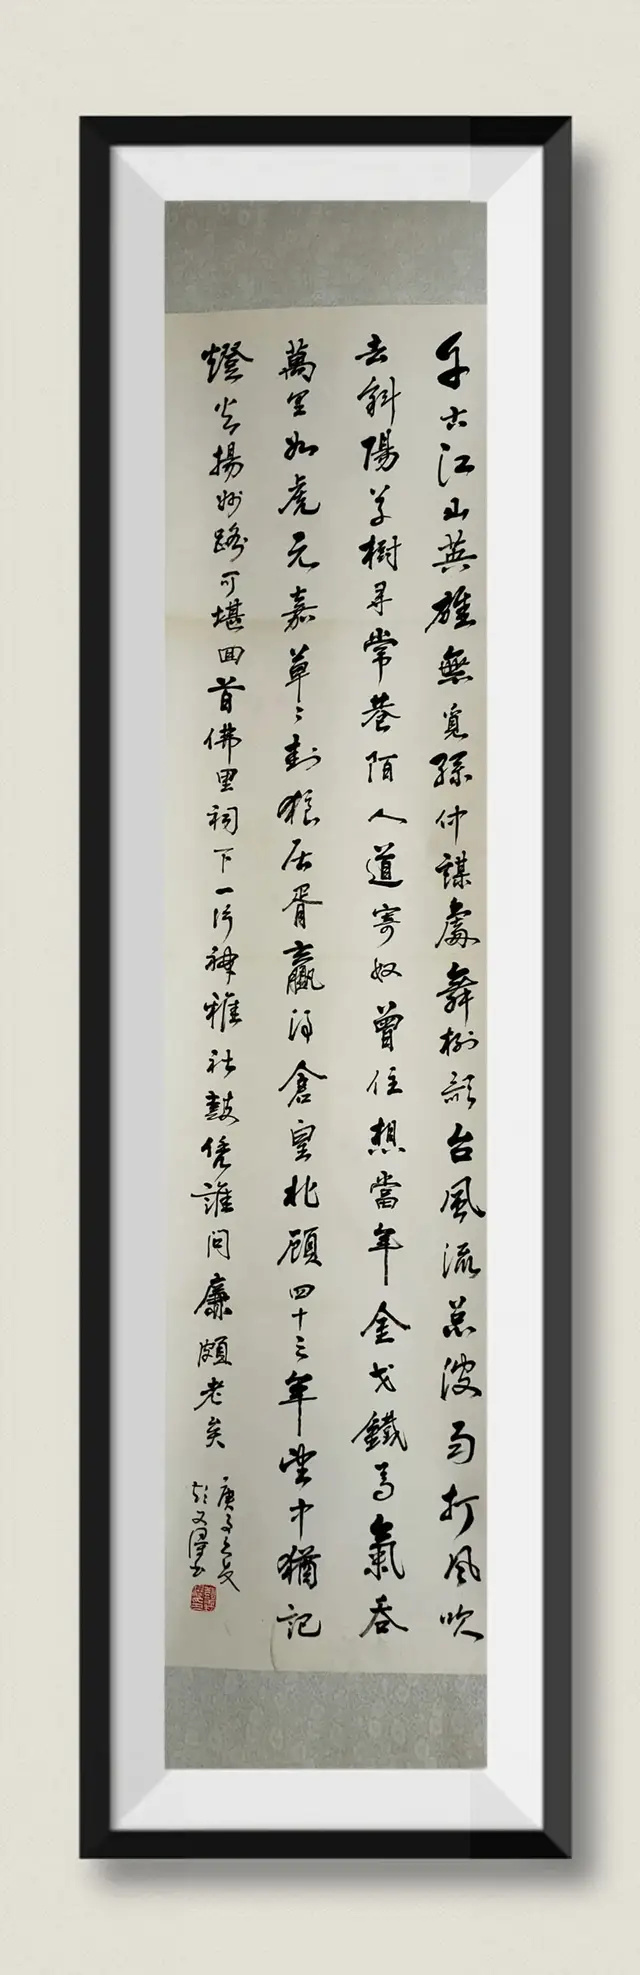 千古江山英雄無覓孫仲謀處舞榭歌台風流总被雨打風吹
去斜陽草樹尋常巷陌人道寄奴曾住想當年金戈鐵馬氣吞
萬里如虎元嘉草々封狼居胥贏得倉皇北顧四十三年望中猶記
燈火揚州路可堪回首佛里祠下一片神鴉社鼓凭誰問廉頗老矣
庚子之夏